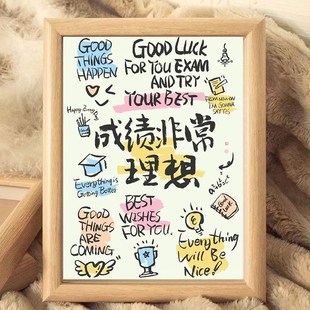 GOOD
THINGS
HAPPEN
GOOD LUCK
FOR YOU EXAM
AND TRY
YOUR BEST
Happy Every
FROM NOW ON
I'M GONNA
SAY YES
成绩非常
理想
Everything is
Getting Better
BEST
WISHES
FOR YOU
GOOD
THINGS
ARE
COMING
Everything
Will Be
Nice!